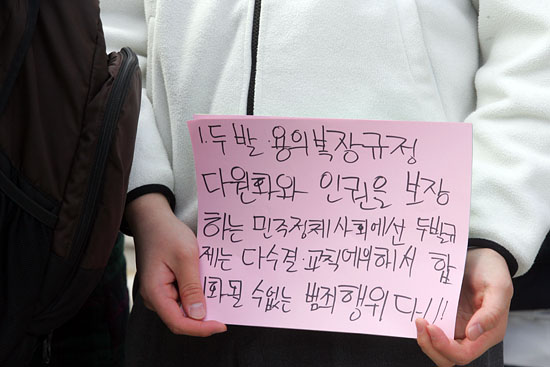 1. 두발·용의복장규정
다원화와 인권을 보장
하는 민주정체사회에선 두발규
제는 다수결·교칙에의하서 합
리화될 수없는 범죄행위다!!